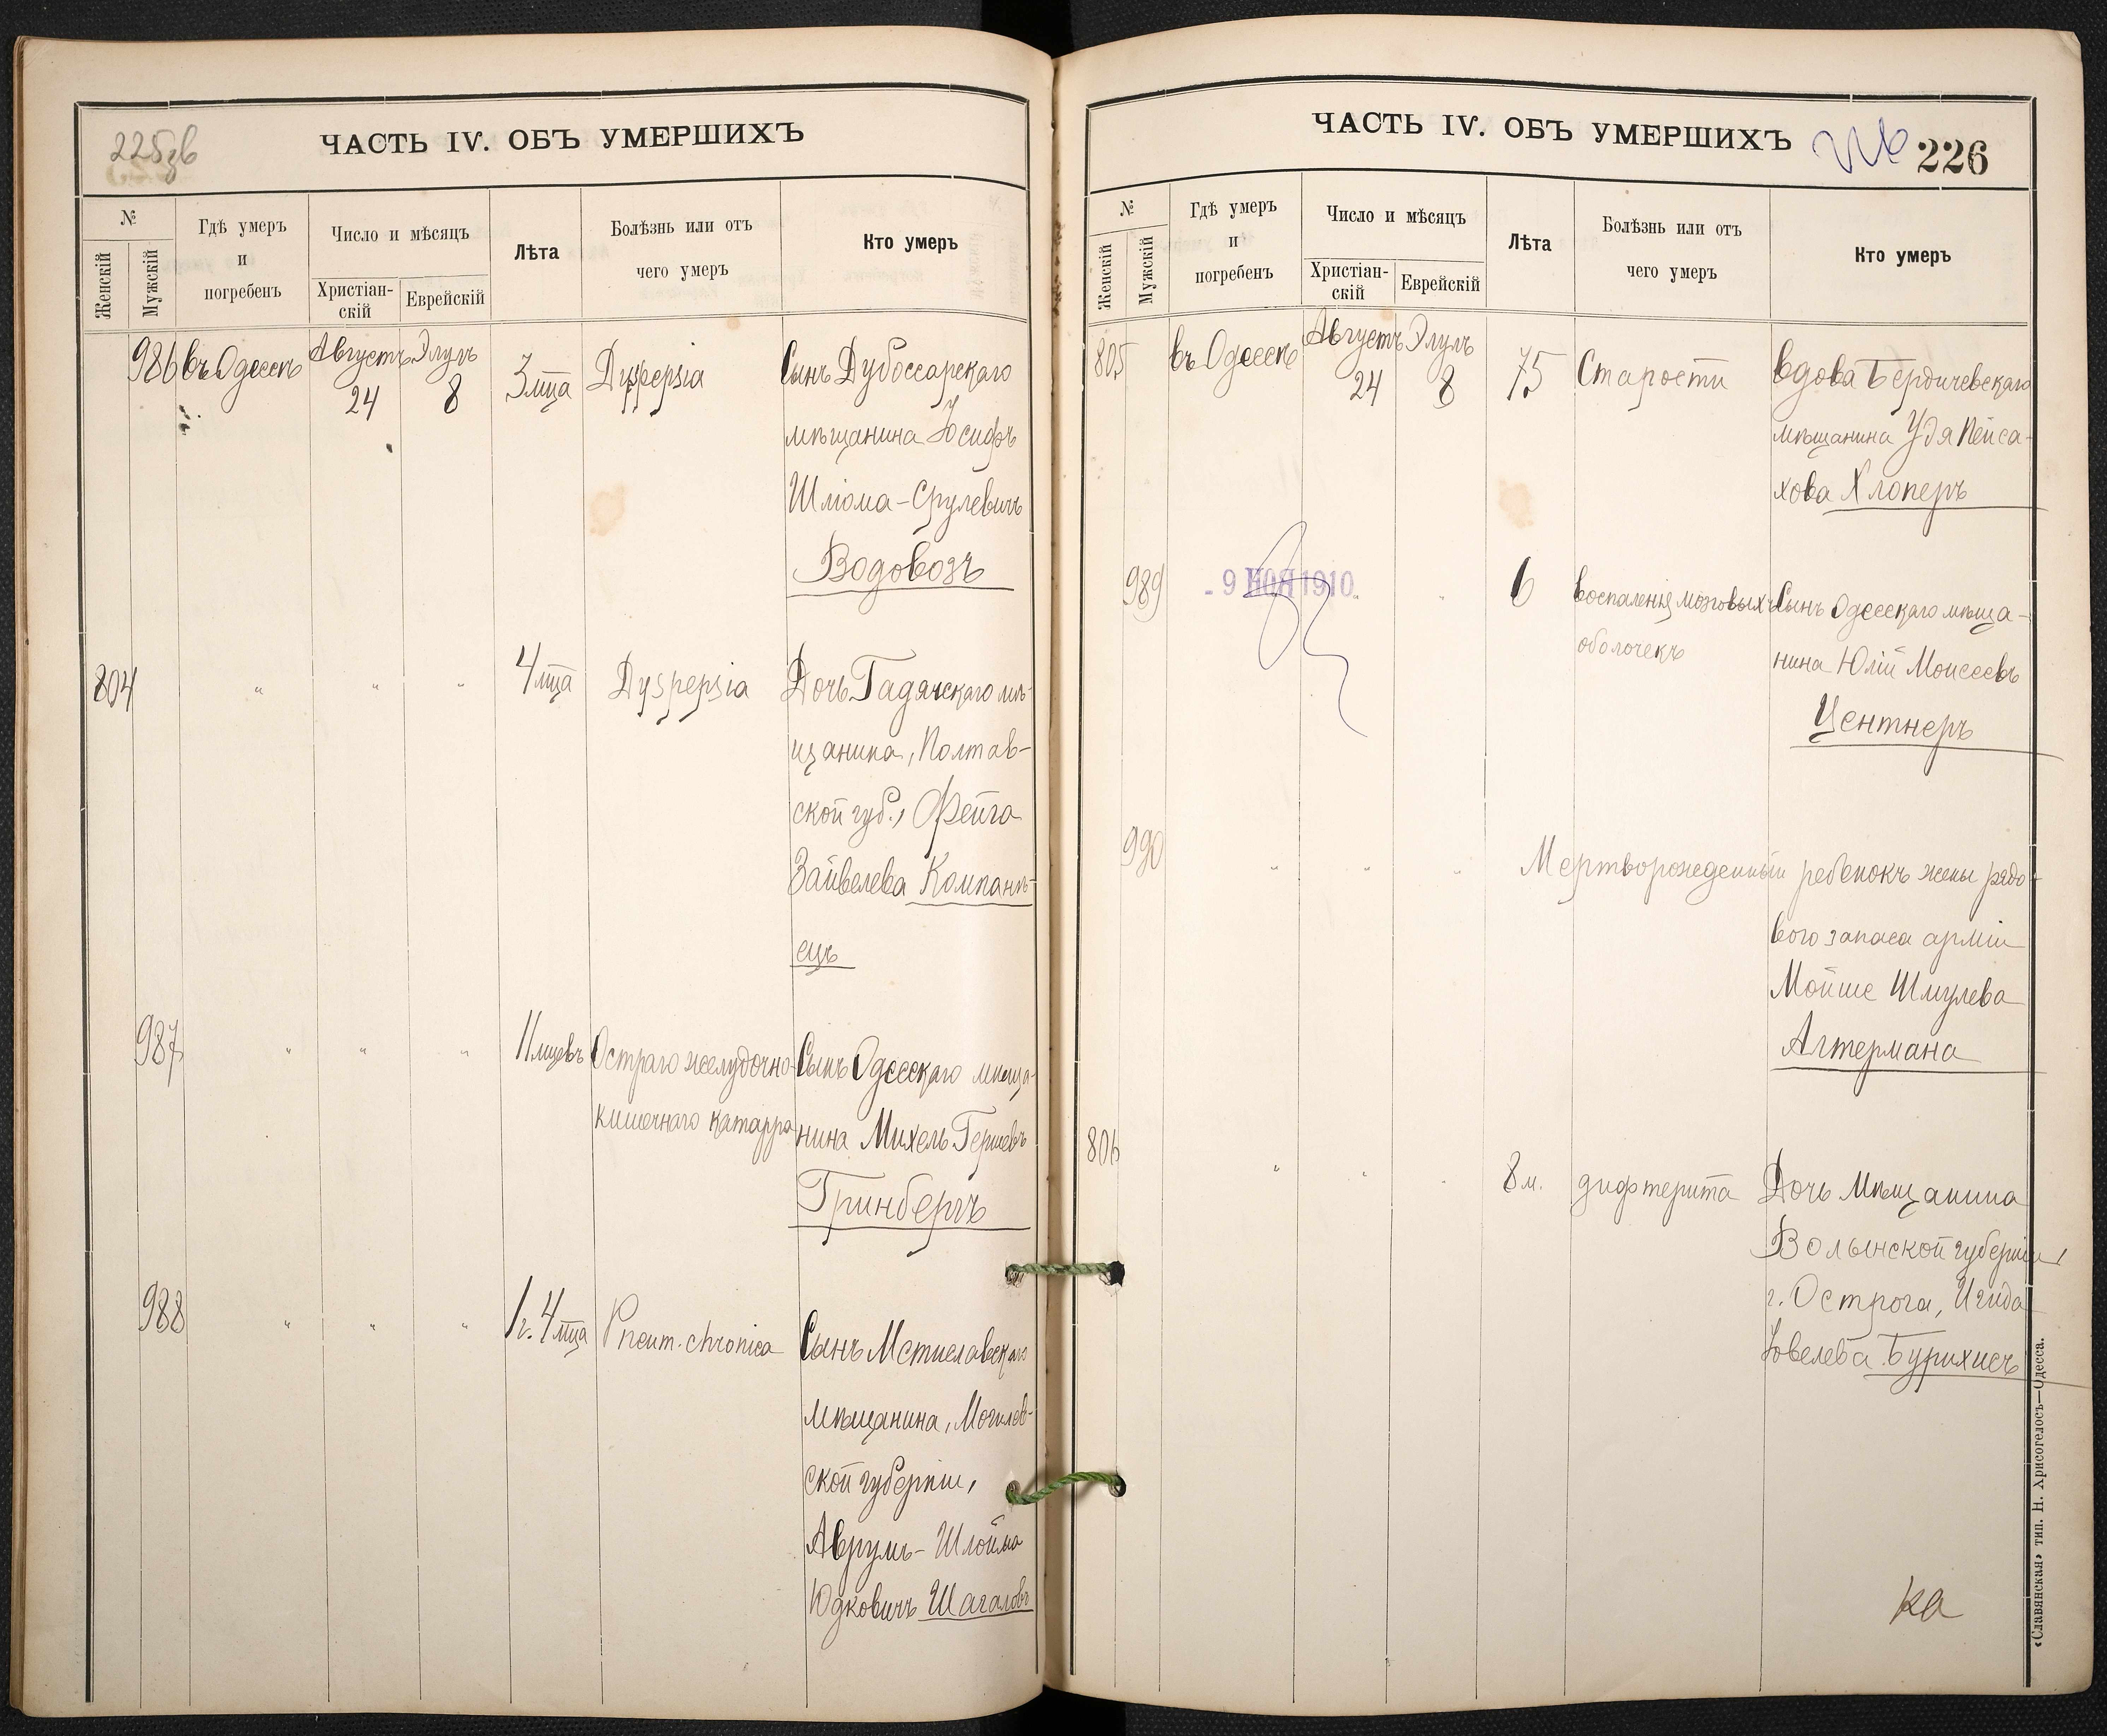 225зв
ЧАСТЬ IV. ОБЪ УМЕРШИХЪ
№
Женскій
Мужскій
Гдѣ умеръ
и
погребенъ
Число и мѣсяцъ
Христіан-
скій
Еврейскій
Лѣта
Болѣзнь или отъ
чего умеръ
Кто умеръ
986 въ Одессѣ Августъ 24 Элулъ 8 3 мца Dyspepsia Сынъ Дубоссарскаго
мѣщанина Іосифъ
Шліома-Срулевичъ
Водовозъ
804 " " " 4 мца Dyspepsia Дочь Гадячскаго мѣ-
щанина, Полтав-
ской губ., Фейга
Зайвелева Компанѣ-
ецъ
987 " " " 11 мцевъ Остраго желудочно- Сынъ Одесскаго мѣща-
кишечнаго катарра нина Михель Гершевъ
Гринбергъ
988 " " " 1 г. 4 мца Pneum. chronica Сынъ Мстиславскаго
мѣщанина, Могилев-
ской губерніи,
Аврумъ-Шлойма
Юдковичъ Шагаловъ
ЧАСТЬ IV. ОБЪ УМЕРШИХЪ
226
№
Женскій
Мужскій
Гдѣ умеръ
и
погребенъ
Число и мѣсяцъ
Христіан-
скій
Еврейскій
Лѣта
Болѣзнь или отъ
чего умеръ
Кто умеръ
805 въ Одессѣ Августъ 24 Элулъ 8 75 Старости вдова Бердичевскаго
мѣщанина Удя Пейса-
хова Хлоперъ
989 - 9 НОЯ 1910 " " 6 воспаленія мозговыхъ Сынъ Одесскаго мѣща-
оболочекъ нина Юлій Моисеевъ
Центнеръ
990 " " " Мертворожденный ребенокъ жены рядо-
вого запаса арміи
Мойше Шмулева
Алтермана
806 " " " 8 м. дифтерита Дочь мѣщанина
Волынской губерніи,
г. Острога, Игида
Іовелева Бурихисъ
ка
«Славянская» тип. Н. Хрисогелосъ—Одесса.